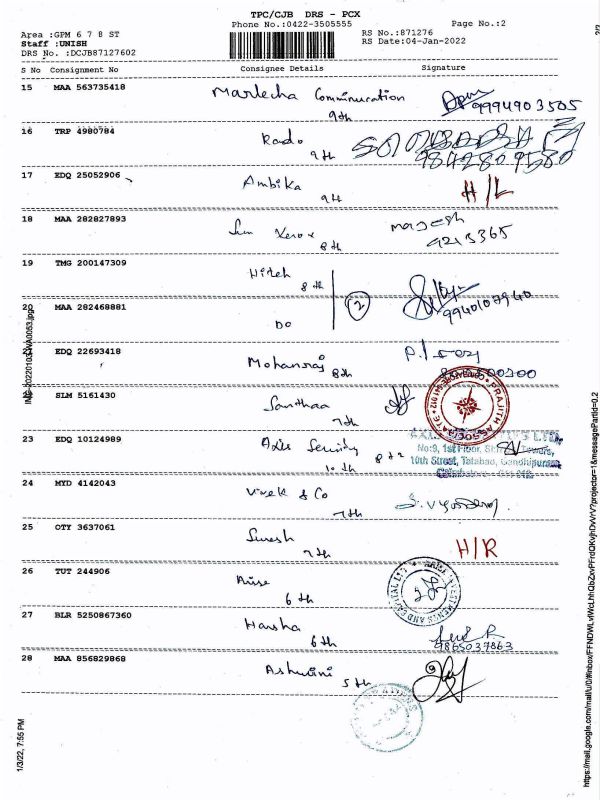 TPC/CJB DRS - PCX
Phone No.:0422-3505555
Page No.:2
2/2
Area :GPM 6 7 8 ST
RS No.:871276
Staff :UNISH
RS Date:04-Jan-2022
DRS No. :DCJB87127602
S No Consignment No Consignee Details Signature
15 MAA 563735418 Marlecha Communication 9994903505
9th
16 TRP 4980784 Rado
9th 9842809580
17 EDQ 25052906 Ambika H/L
9th
18 MAA 282827893 Sun Xerox magesh
8th 9213365
19 TMG 200147309 Hitesh
8th 2 9940107940
20 MAA 282468881 DO
EDQ 22693418 Mohanraj
8th
SLM 5161430 Santhaa
7th
PRAJITH ASSOCIATE
23 EDQ 10124989 Axis Security 8th
10th
No:9, 1st Floor, Towers,
10th Street, Tatabad, Gandhipuram
24 MYD 4142043 Vivek & Co
7th
25 OTY 3637061 Suresh H/R
7th
26 TUT 244906 Arise
6th
27 BLR 5250867360 Harsha
6th 9865037863
28 MAA 856829868 Ashwini
5th
1/3/22, 7:55 PM